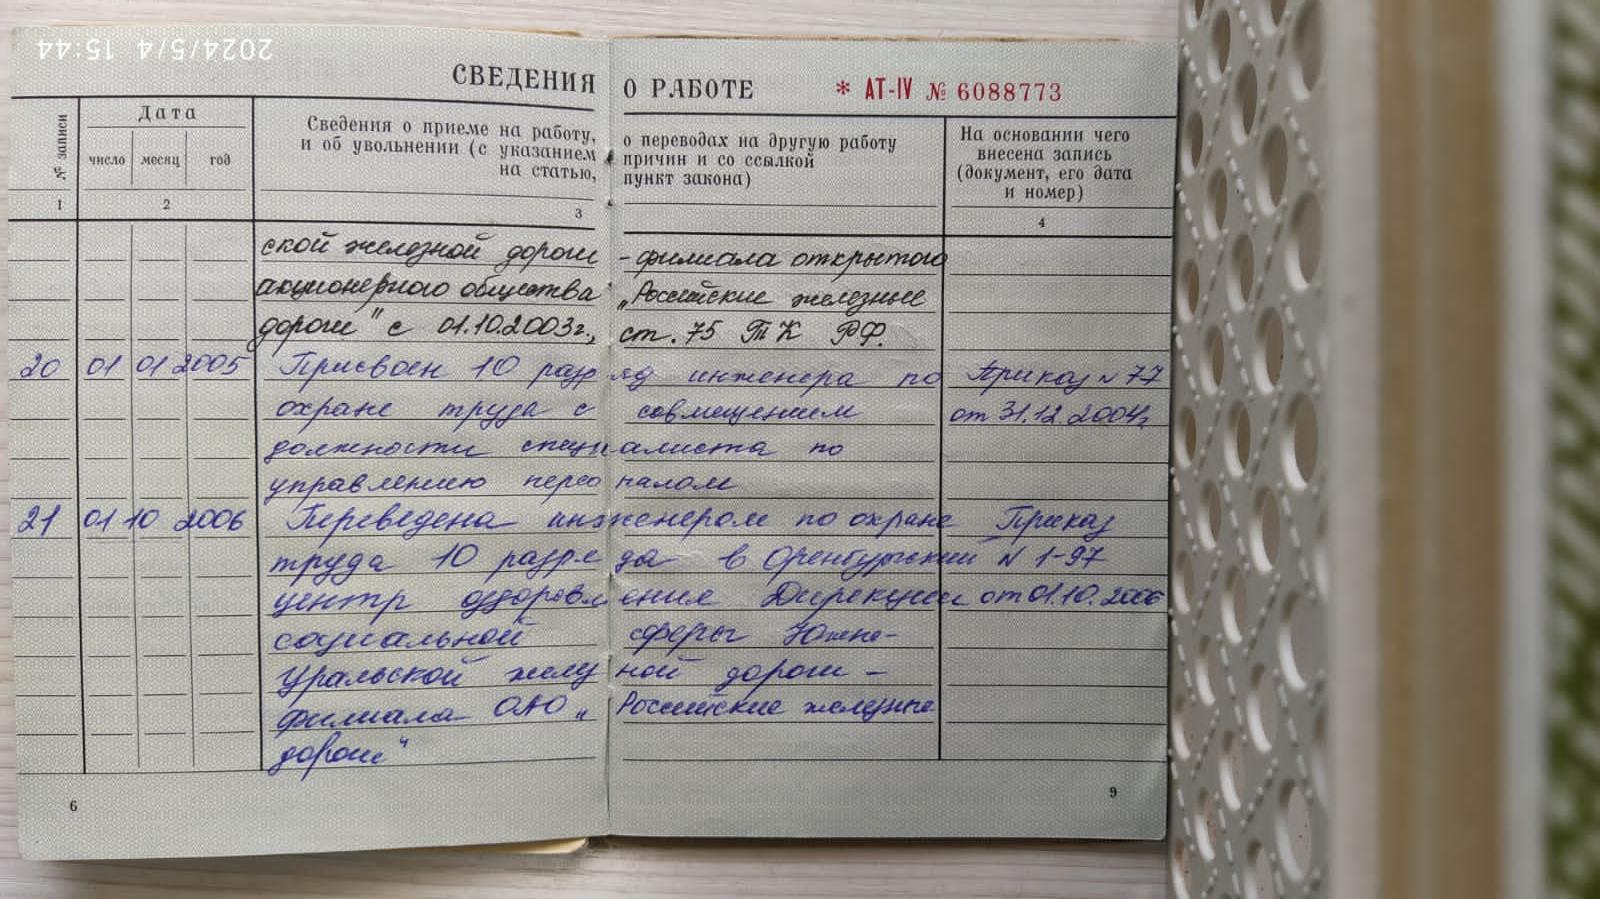 2024/5/4 15:44
СВЕДЕНИЯ О РАБОТЕ * AT-IV № 6088773
№ записи
Дата
число месяц год
Сведения о приеме на работу, о переводах на другую работу
и об увольнении (с указанием причин и со ссылкой
на статью, пункт закона)
На основании чего
внесена запись
(документ, его дата
и номер)
1 2 3 4
ской железной дороги - филиала открытого
акционерного общества „Российские железные
дороги" с 01.10.2003г., ст. 75 ТК РФ.
20 01 01 2005 Присвоен 10 разряд инженера по Приказ N 77
охране труда с совмещением от 31.12.2004г
должности специалиста по
управлению персоналом
21 01 10 2006 Переведена инженером по охране Приказ
труда 10 разряда в Оренбургский N 1-97
центр оздоровления Дирекции от 01.10.2006
социальной сферы Южно-
Уральской желез ной дороги -
филиала ОАО „Российские железные
дороги"
6 9